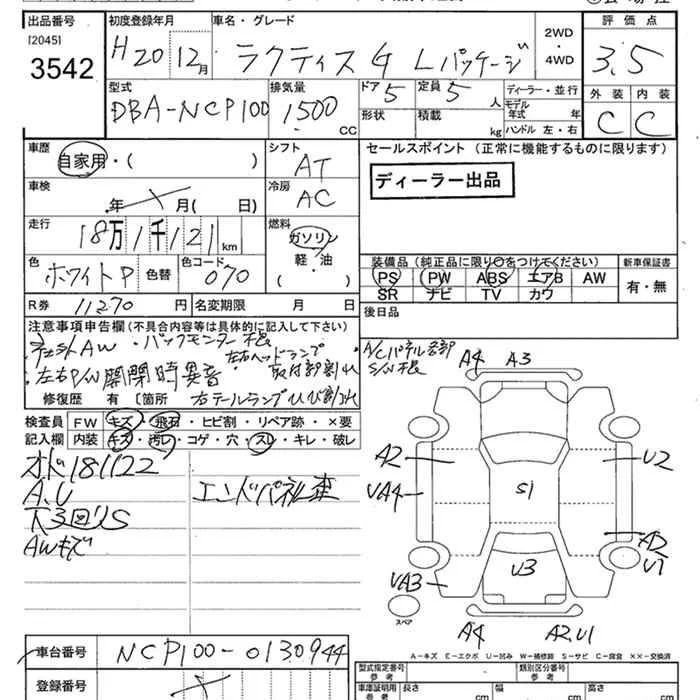 出品番号 初度登録年月 車名・グレード 評価点
[2045]
3542
H20 12月 ラクティス G Lパッケージ 2WD・4WD 3.5
型式 排気量 ドア 5 定員 5人 ディーラー・並行 外装 内装
DBA-NCP100 1500cc 形状 積載 kg モデル年式 年 C C
ハンドル 左・右
車歴 シフト セールスポイント(正常に機能するものに限ります)
自家用・( ) AT ディーラー出品
車検 冷房
年 月( 日) AC
走行 燃料
18万1千121km ガソリン
軽・油
( )
装備品(純正品に限り○をつけてください) 新車保証書
色 色替 色コード
ホワイトP 070
PS PW ABS エアB AW 有・無
SR ナビ TV カワ
R券 11270円 名変期限 月 日 後日品
注意事項申告欄(不具合内容等は具体的に記入して下さい)
社外AW・バックモニター不良
左右ヘッドランプ
左右P/W開閉時異音 取付部割れ
修復歴 有〔箇所 右テールランプひび割れ
A/Cパネル各部
S/W不良
検査員 FW キズ・飛石・ヒビ割・リペア跡・×要
記入欄 内装 キズ・汚レ・コゲ・穴・スレ・キレ・破レ
オド181122
A.U エンドパネル歪
下3回リS
AWキズ
A4 A3
A2 U2
UA4 S1
A2
U1
UA3 U3
スペア
A4 A2.U1
A-キズ E-エクボ U-凹み W-補修跡 S-サビ C-腐食 ××-交換済
車台番号 NCP100-0130944
登録番号
型式指定番号 類別区分番号
車庫証明用 長さ 幅 高さ
参考No. cm cm cm